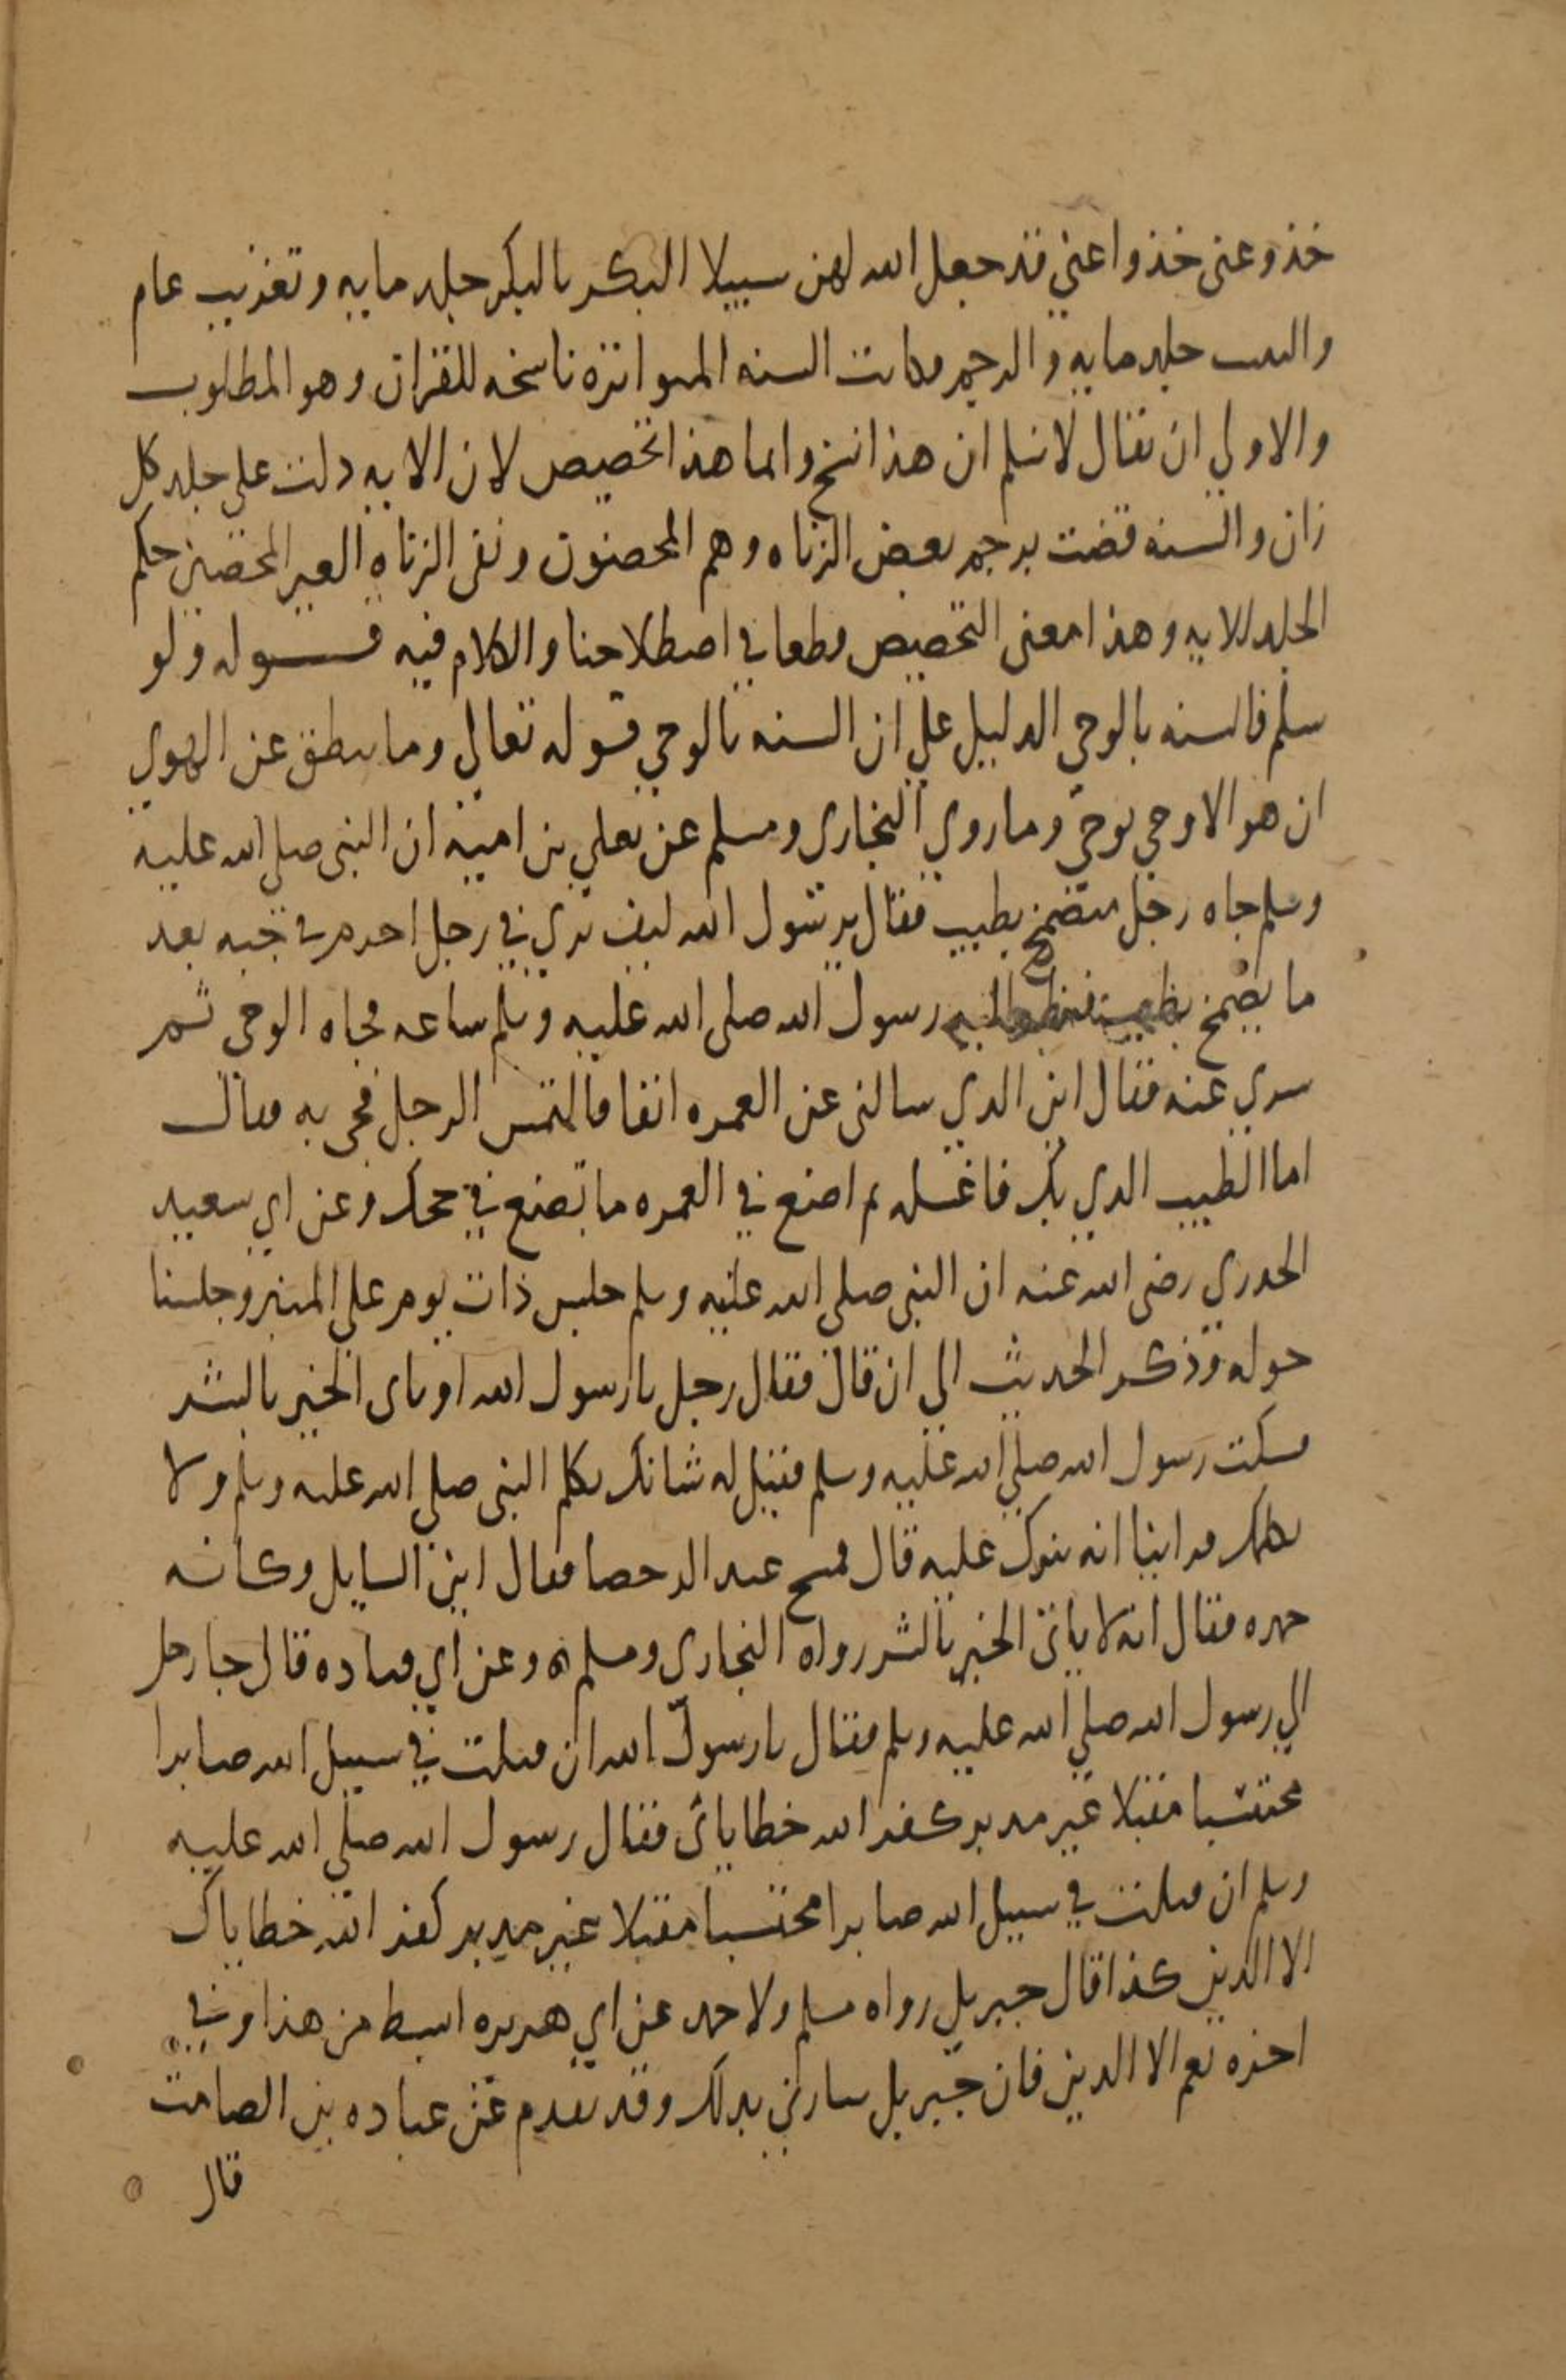 خذوعنى خذوا عني قد جعل الله لهن سبيلا البكر بالبكر جلد مايه وتغريب عام
والثيب جلد مايه والرجم وكانت السنه المتواتره ناسخه للقران وهو المطلوب
والاولي ان يقال لا نسلم ان هذا نسخ وانما هذا تخصيص لان الايه دلت على جلد كل
زان والسنه قضت برجم بعض الزناه وهم المحصنون وبقى الزناه الغير المحصنين حكم
الجلد للايه وهذا معنى التخصيص قطعا في اصطلاحنا والكلام فيه قـــوله ولو
سلم فالسنه بالوحي الدليل علي ان السنه بالوحي قوله تعالي وما ينطق عن الهوي
ان هو الا وحي يوحي وما روي البخاري ومسلم عن يعلي بن اميه ان النبى صلي الله عليه
وسلم جاه رجل متضمخ بطيب فقال يرسول الله كيف تري في رجل احرم في جبه بعد
ما تضمخ بطيب فنظر اليه رسول الله صلى الله عليه وسلم ساعه فجاه الوحى ثم
سري عنه فقال اين الدي سالنى عن العمره انفا فالتمس الرجل فجى به فقال
اما الطيب الدي بك فاغسله ثم اصنع في العمره ما تصنع في حجك وعن ابي سعيد
الخدري رضى الله عنه ان النبى صلى الله عليه وسلم جلس ذات يوم علي المنبر وجلسنا
حوله وذكر الحديث الى ان قال فقال رجل يا رسول الله او ياى الخير بالشر
فسكت رسول الله صلي الله عليه وسلم فقيل له شانك تكلم النبى صلي الله عليه وسلم ولا
يكلمك فراينا انه ينزل عليه قال فمسح عنه الرحضا فقال اين السايل وكانه
حمده فقال انه لا ياتى الخير بالشر رواه البخارى ومسلم وعن ابي قتاده قال جا رجل
الي رسول الله صلي الله عليه وسلم فقال يا رسول الله ان قتلت في سبيل الله صابرا
محتسبا مقبلا غير مدبر كفر الله خطاياى فقال رسول الله صلي الله عليه
وسلم ان قتلت في سبيل الله صابرا محتسبا مقبلا غير مدبر كفر الله خطاياك
الا الدين كذا قال جبريل رواه مسلم ولاحمد عن ابي هريره ابسط من هذا وفي
اخره نعم الا الدين فان جبريل سارني بدلك وقد تقدم عن عباده بن الصامت
قال